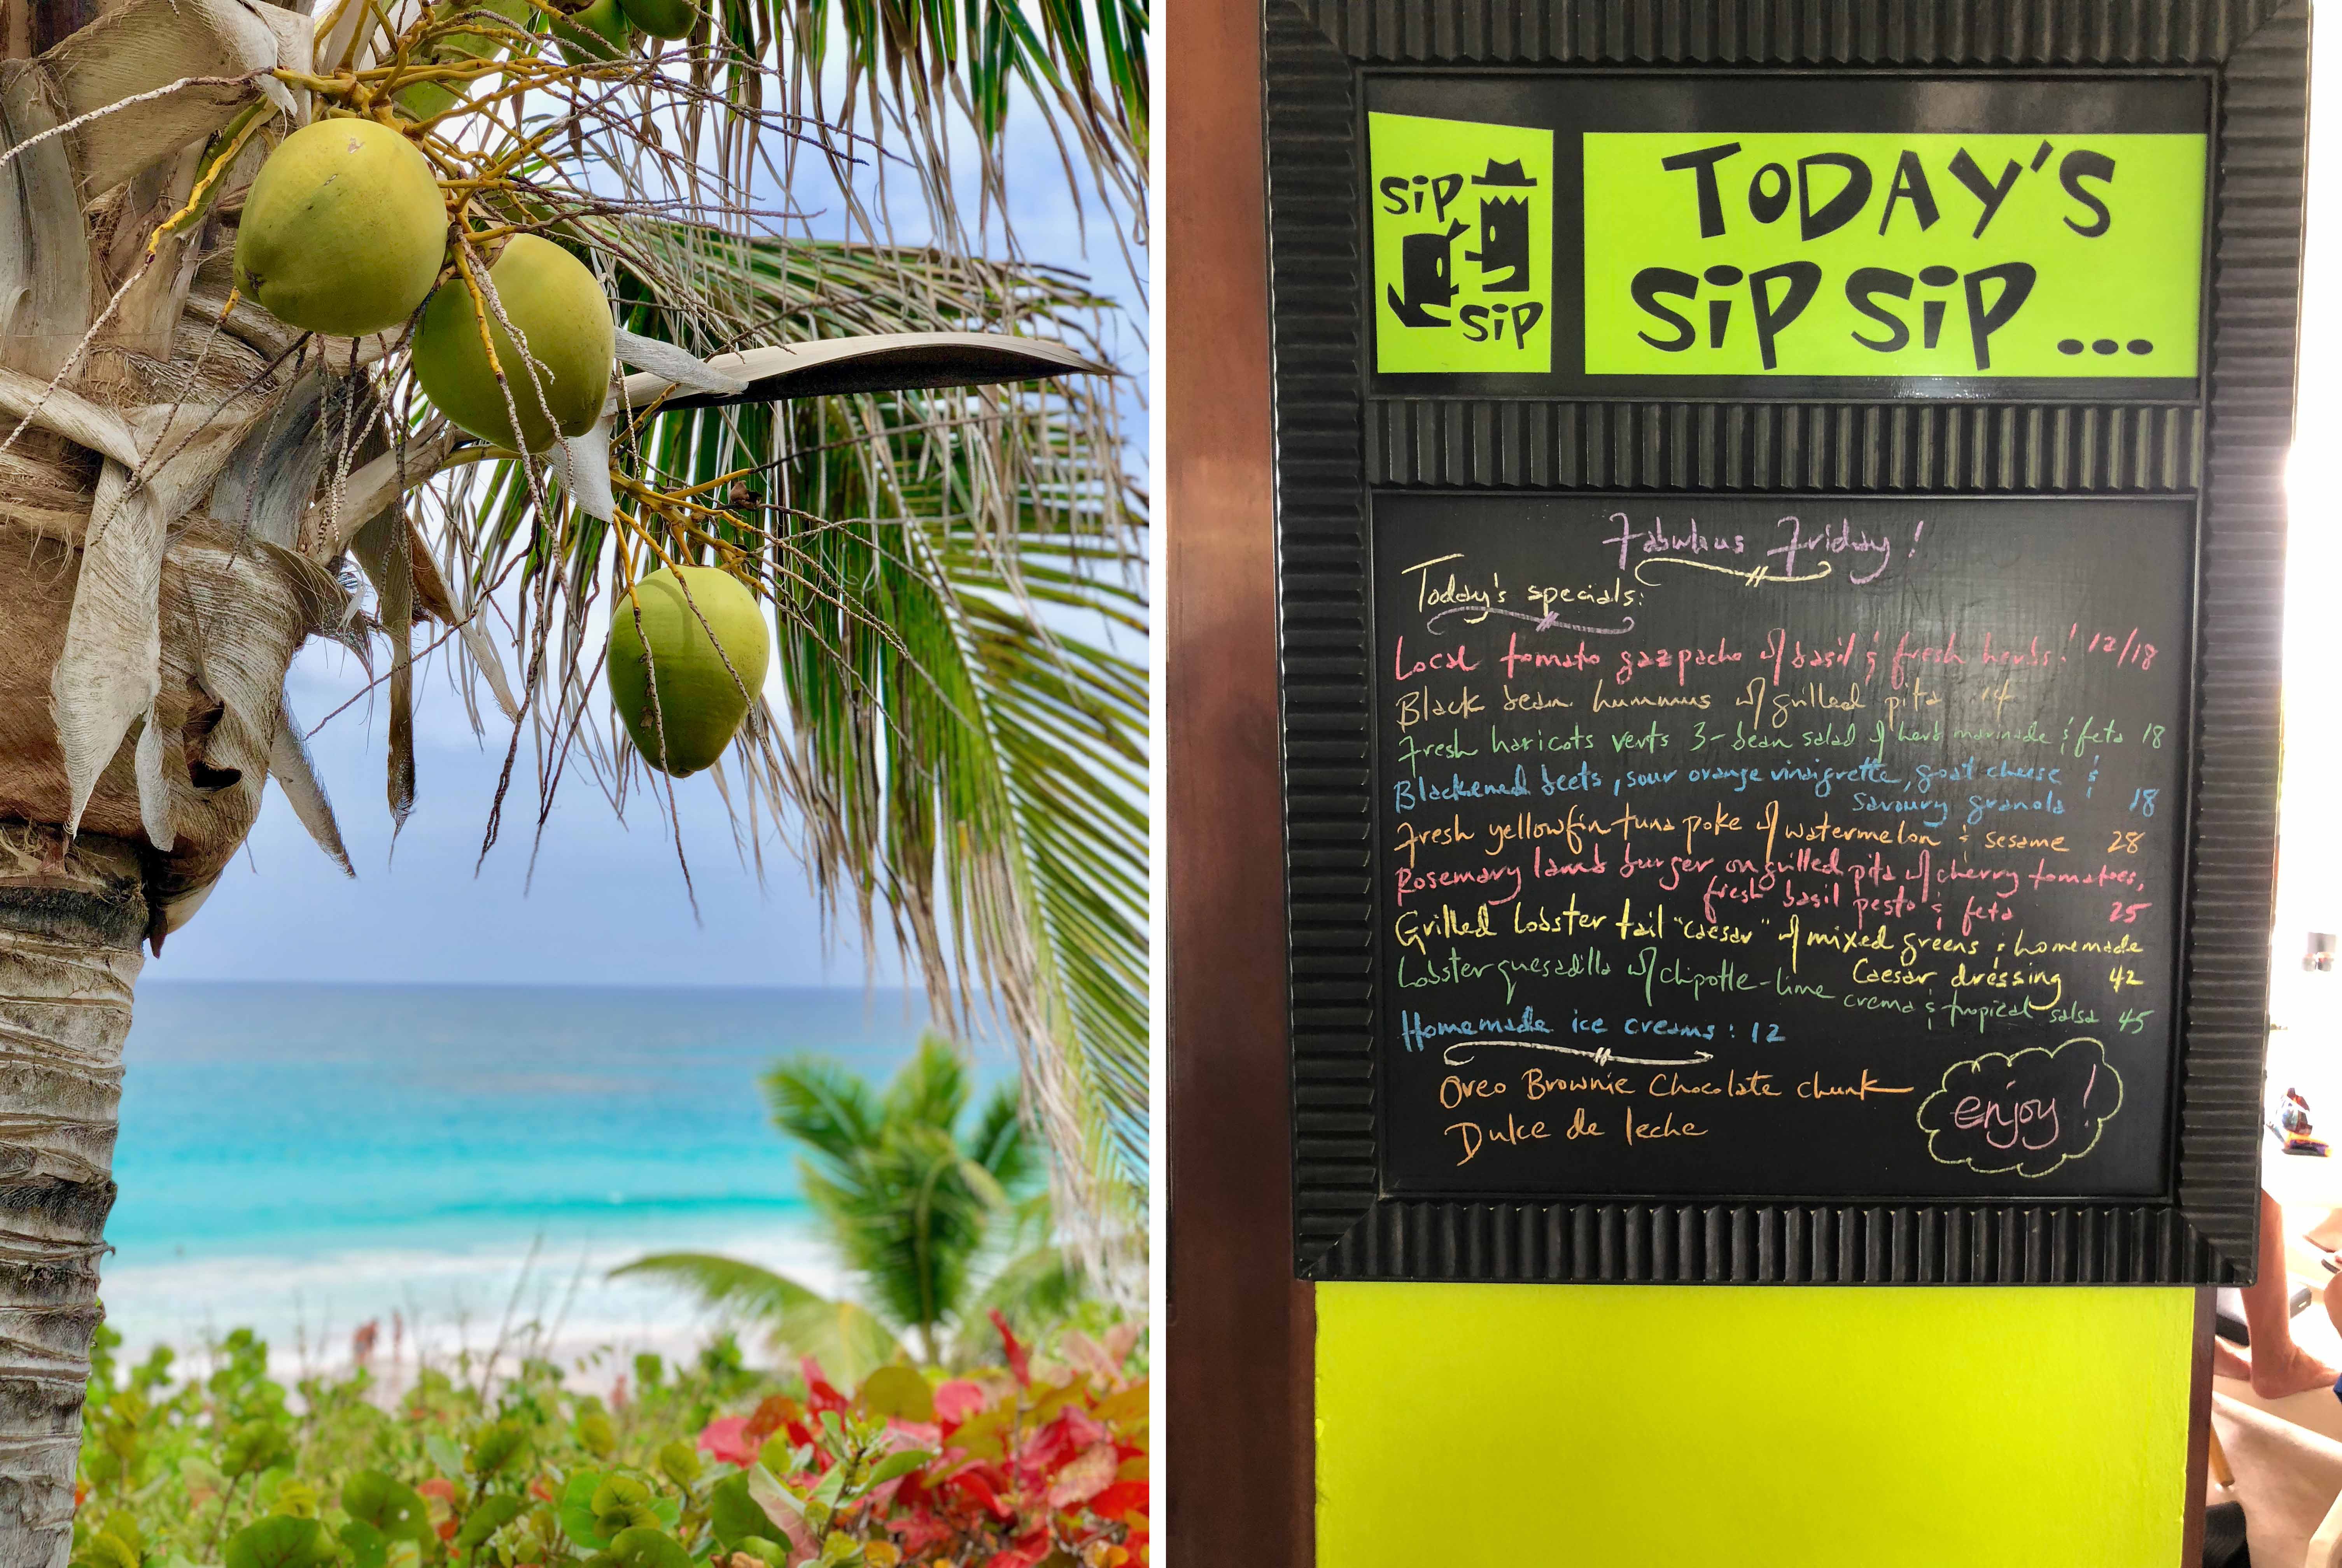 sip
sip
TODAY'S
sip sip ...
Fabulous Friday!
Today's specials:
Local tomato gazpacho w/ basil & fresh herbs! 12/18
Black bean hummus w/ grilled pita 14
Fresh haricots verts 3-bean salad w/ herb marinade & feta 18
Blackened beets, sour orange vinaigrette, goat cheese &
savoury granola 18
Fresh yellowfin tuna poke w/ watermelon & sesame 28
Rosemary lamb burger on grilled pita w/ cherry tomatoes,
fresh basil pesto & feta 25
Grilled lobster tail "caesar" w/ mixed greens & homemade
Caesar dressing 42
Lobster quesadilla w/ chipotle-lime crema & tropical salsa 45
Homemade ice creams: 12
Oreo Brownie Chocolate chunk
Dulce de leche
enjoy!